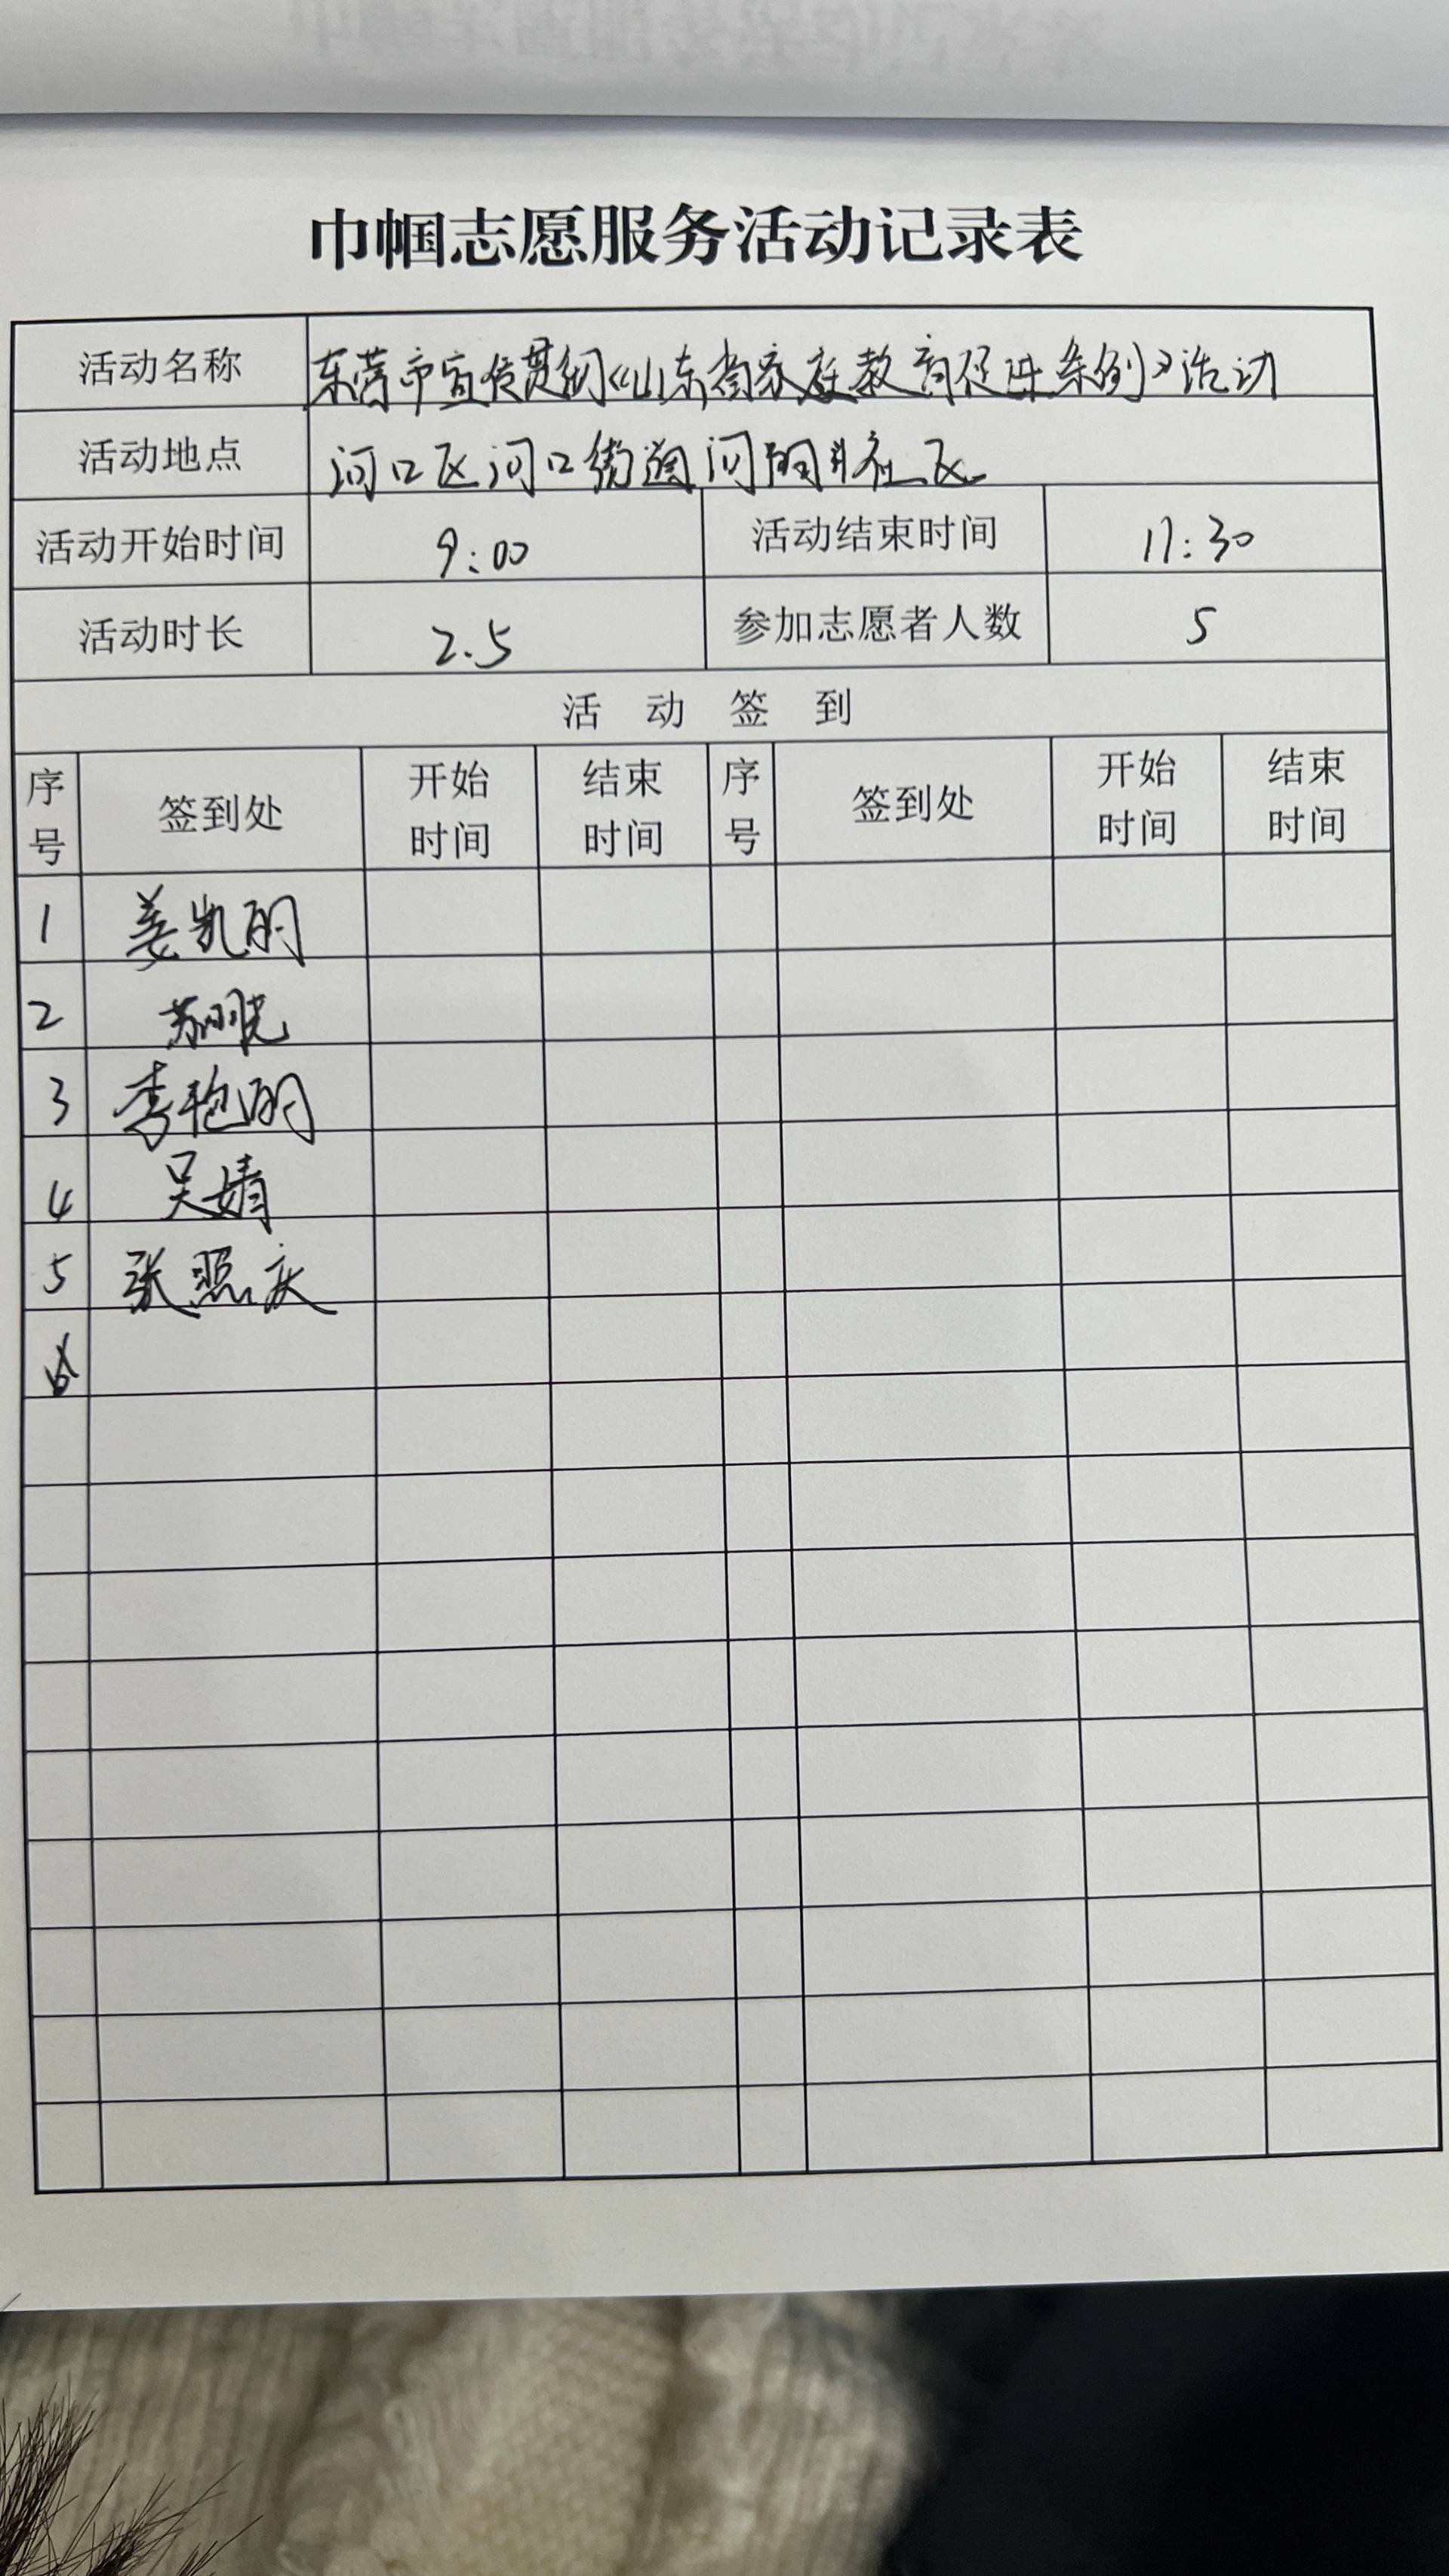 巾帼志愿服务活动记录表
活动名称 东营市宣传贯彻《山东省家庭教育促进条例》活动
活动地点 河口区河口街道河明社区
活动开始时间 9:00 活动结束时间 11:30
活动时长 2.5 参加志愿者人数 5
活动签到
序号 签到处 开始时间 结束时间 序号 签到处 开始时间 结束时间
1 姜凯丽
2 苏明亮
3 李艳丽
4 吴婧
5 张照庆